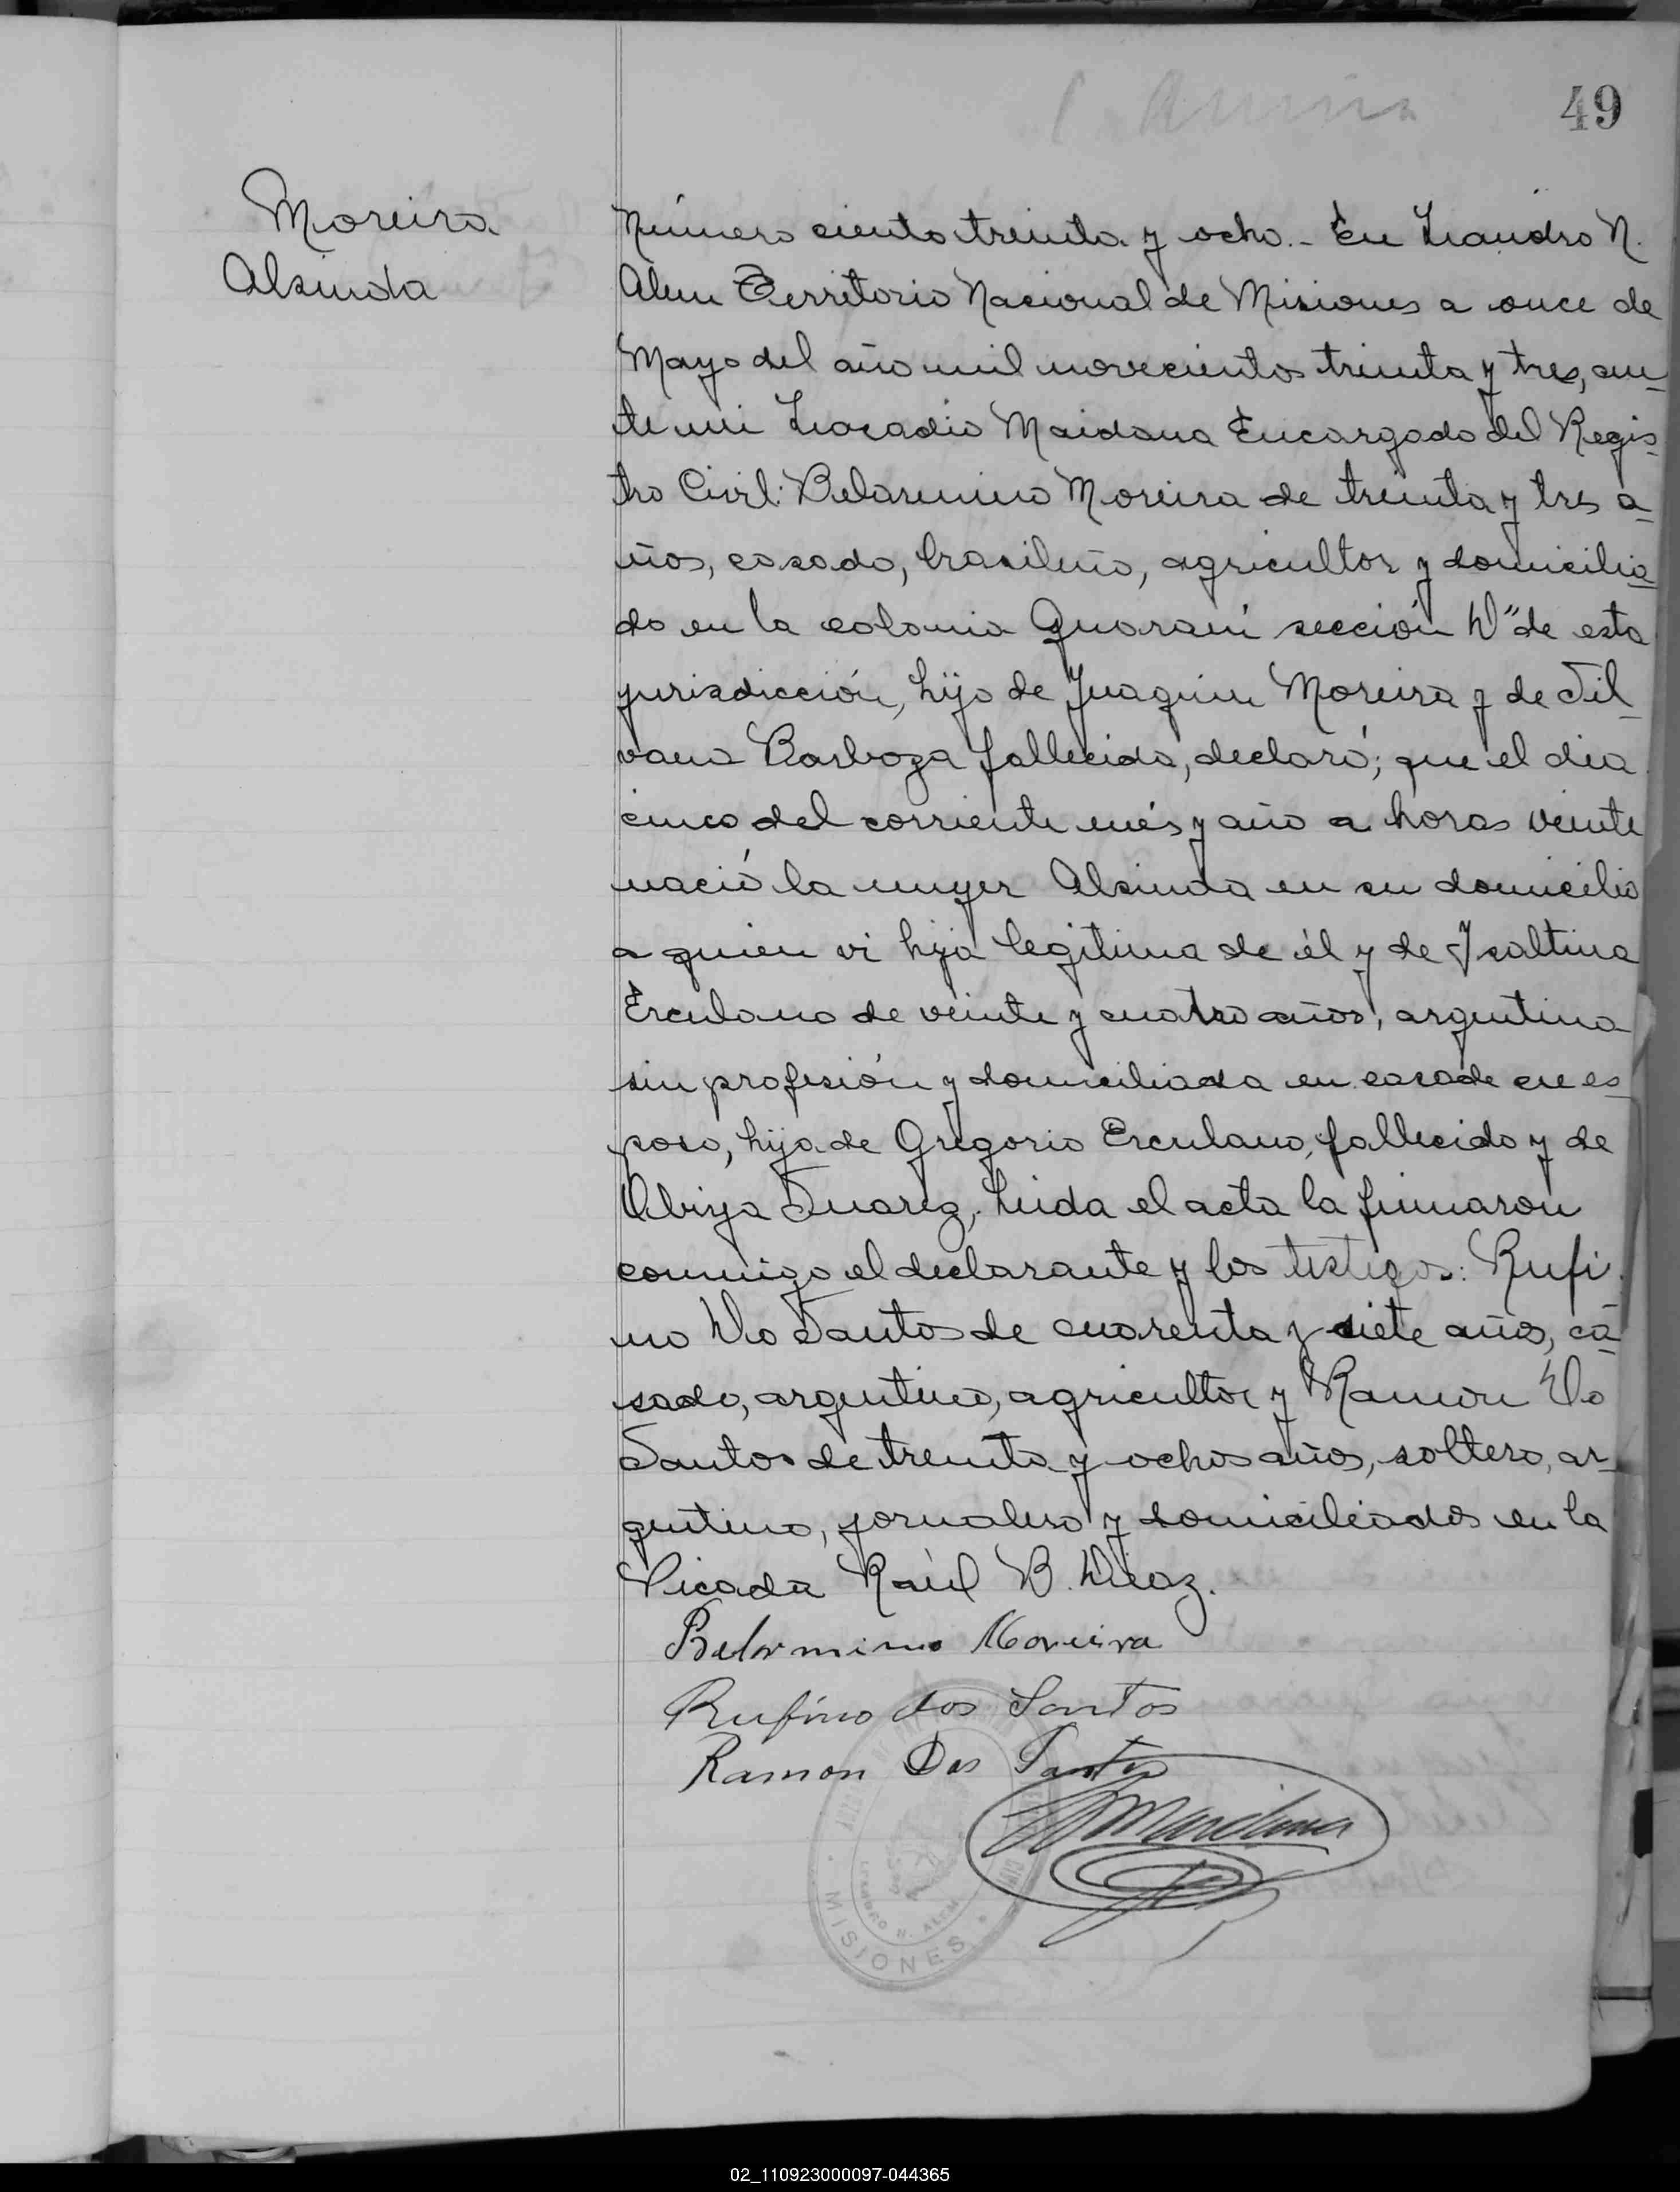 49
Moreira
Alsinda
Número ciento treinta y ocho.- En Leandro N.
Alem Territorio Nacional de Misiones a once de
Mayo del año mil novecientos treinta y tres, an-
te mi Leocadio Maidana Encargado del Regis-
tro Civil: Belarmino Moreira de treinta y tres a-
ños, casado, brasileño, agricultor y domicilia-
do en la colonia Guaraní sección D" de esta
jurisdicción, hijo de Juaquin Moreira y de Sil-
vana Barboza fallecida, declaró; que el dia
cinco del corriente més y año a horas veinte
nació la mujer Alsinda en su domicilio
a quien vi hija legitima de él y de Isaltina
Erculano de veinte y cuatro años, argentina
sin profesión y domiciliada en casa de su es-
poso, hija de Gregorio Erculano, fallecido y de
Suarez, Leida el acta la firmaron
conmigo el declarante y los testigos: Rufi-
no Do Santos de cuarenta y siete años, ca-
sado, argentino, agricultor y Ramon Do
Santos de treinta y ochos años, soltero, ar-
gentino, jornalero y domiciliados en la
Picada Raúl B. Diaz.
Belarmino Moreira
Rufino dos Santos
Ramon Dos Santos
Maidana
MISIONES
LEANDRO N. ALEM
02_110923000097-044365